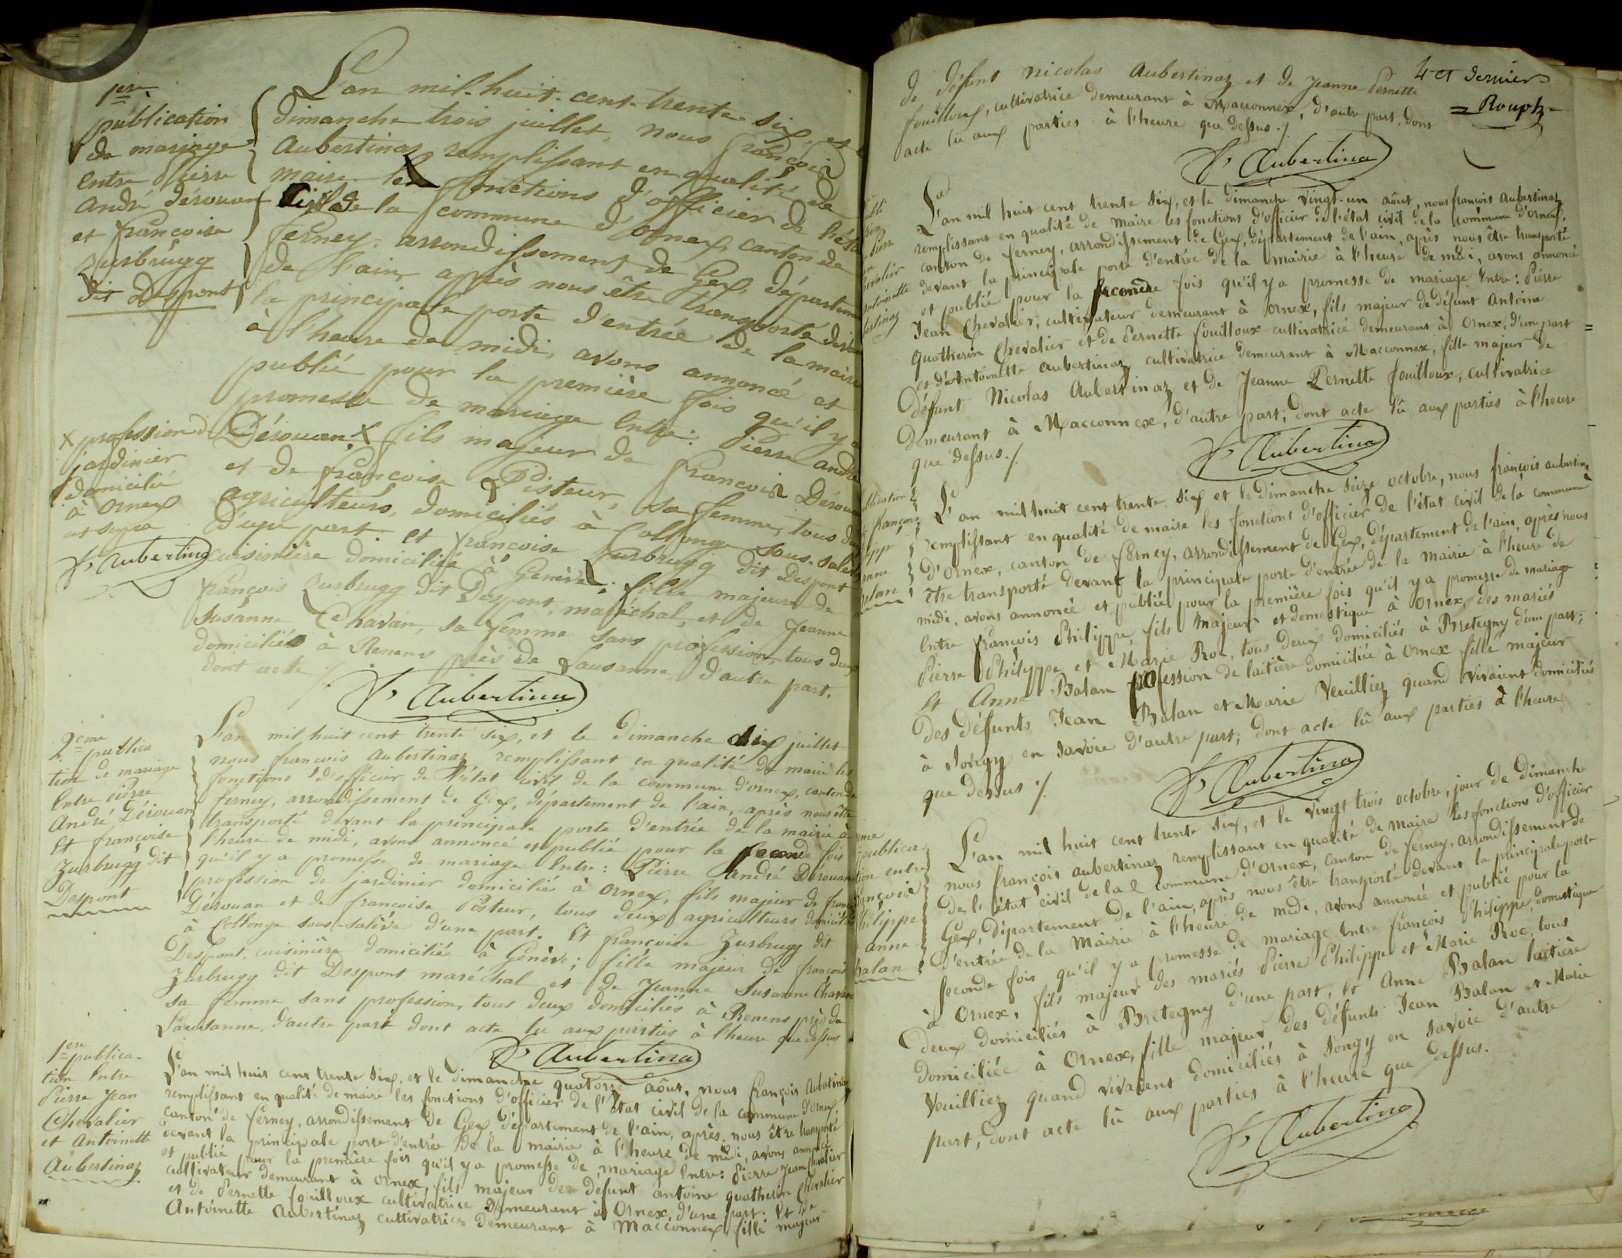 1ere
publication
de mariage
entre Pierre
André Dérouan
et françoise
Zurbrügg
dit Despont
L'an mil-huit-cent-trente six, et le
dimanche trois juillet, nous françois
Aubertinaz remplissant en qualité de
maire les fonctions d'officier de l'état
civil de la commune d'ornex canton de
ferney, arrondissement de Gex, départem
de l'ain, après nous être transporté dev
la principale porte d'entrée de la mairie
à l'heure de midi, avons annoncé et
publié pour la première fois qu'il y a
promesse de mariage Entre: Pierre andré
Dérouan, X fils majeur de françois Dérou
et de françoise Pisteur, sa femme, tous d
agriculteurs, domiciliés à Collonge sous salè
d'une part. et françoise Zurbrugg dit Despont
cuisinière domiciliée à Genève; fille majeure de
françois Zurbrugg dit Despont, maréchal, et de Jeanne
Susanne Chavan, sa femme sans profession, tous deux
domiciliés à Renens près de Lausanne, d'autre part.
dont acte ./.
X profession de
jardinier
domicilié
à ornex
ut supra
fs Aubertinaz
fs Aubertinaz
2eme publica
tion de mariage
Entre pierre
André Dérouan
Et françoise
Zurbrugg dit
Despont
L'an mil huit cent trente six, et le dimanche dix juillet
nous francois Aubertinaz remplissant en qualité de maire les
fonctions d'officier de l'état civil de la commune d'ornex, canton de
ferney, arrondissement de Gex, département de l'ain, après nous être
transporté devant la principale porte d'entrée de la mairie à
l'heure de midi, avons annoncé et publié pour la seconde fois
qu'il y a promesse de mariage Entre: Pierre André Dérouan
profession de jardinier domicilié à ornex, fils majeur de franç
Dérouan et de francoise Pisteur, tous deux agriculteurs domicili
à Collonge sous-salève d'une part. Et françoise Zurbrugg dit
Despont, cuisinière domiciliée à Genève; fille majeur de françois
Zurbrugg dit Despont maréchal et de Jeanne Susanne Chavan
sa femme sans profession, tous deux domiciliés à Renens près de
Lausanne, d'autre part dont acte lu aux parties à l'heure que dessus
fs Aubertinaz
1ere publica-
tion Entre
Pierre Jean
Chevalier
et Antoinette
Aubertinaz
L'an mil huit cent trente six, et le dimanche quatorze août, nous françois Aubertinaz
remplissant en qualité de maire les fonctions d'officier de l'état civil de la commune d'ornex,
canton de ferney, arrondissement de Gex, département de l'ain, après nous être transporté
devant la principale porte d'entrée de la mairie à l'heure de midi, avons annoncé
et publié pour la première fois qu'il y a promesse de mariage Entre: Pierre Jean Chevalier
cultivateur demeurant à ornex, fils majeur de défunt antoine quotherin Chevalier
et de Pernette fouilloux cultivatrice demeurant à Ornex, d'une part. Et de
Antoinette Aubertinaz cultivatrice demeurant à Macconnex, fille majeur
4 et dernier
Rouph
de défunt nicolas Aubertinaz et de Jeanne Pernette
fouilloux, cultivatrice demeurant à Macconnex, d'autre part. dont
acte lu aux parties à l'heure que dessus ./.
fs Aubertinaz
L'an mil huit cent trente six, et le dimanche vingt-un août, nous françois Aubertinaz
remplissant en qualité de Maire les fonctions d'officier de l'état civil de la commune d'ornex,
canton de ferney, arrondissement de Gex, département de l'ain, après nous être transporté
devant la principale porte d'entrée de la mairie à l'heure de midi, avons annoncé
et publié pour la seconde fois qu'il y a promesse de mariage Entre: Pierre
Jean Chevalier, cultivateur demeurant à ornex, fils majeur de défunt Antoine
quotherin Chevalier et de Pernette fouilloux cultivatrice demeurant à Ornex, d'une part
et d'Antoinette aubertinaz cultivatrice demeurant à Macconnex, fille majeur de
défunt Nicolas Aubertinaz et de Jeanne Pernette fouilloux, cultivatrice
demeurant à Macconnex, d'autre part, dont acte lû aux parties à l'heure
que dessus ./.
fs Aubertinaz
L'an mil huit cent trente six et le dimanche seize octobre, nous françois aubertinaz
remplissant en qualité de maire les fonctions d'officier de l'état civil de la commune
d'Ornex, canton de ferney, arrondissement de Gex, département de l'ain, après nous
être transporté devant la principale porte d'entrée de la mairie à l'heure de
midi, avons annoncé et publié pour la première fois qu'il y a promesse de mariage
Entre françois Philippe, fils majeur et domestique à Ornex, des mariés
Pierre Philippe et Marie Roc, tous deux domiciliés à Bretegny d'une part;
Et Anne Balan profession de laitière domiciliée à Ornex fille majeur
des défunts Jean Balan et Marie Veuilliez quand vivaient domiciliés
à Songy en Savoie d'autre part, dont acte lû aux parties à l'heure
que dessus ./.
fs Aubertinaz
publica
tion entre
ançois
hilippe
anne
balan
L'an mil huit cent trente six, et le vingt trois octobre, jour de dimanche
nous françois aubertinaz remplissant en qualité de maire les fonctions d'officier
de l'état civil de la commune d'Ornex, canton de ferney, arrondissement de
Gex, département de l'ain, après nous être transporté devant la principale porte
d'entrée de la Mairie à l'heure de midi, avons annoncé et publié pour la
seconde fois qu'il y a promesse de mariage Entre françois Philippe, domestique
à Ornex, fils majeur des mariés Pierre Philippe et Marie Roc, tous
deux domiciliés à Bretegny d'une part, Et Anne Balan laitière
domiciliée à Ornex, fille majeur des défunts Jean Balan et Marie
Veuilliez quand vivaient domiciliés à Songy en Savoie d'autre
part, dont acte lû aux parties à l'heure que dessus.
fs Aubertinaz